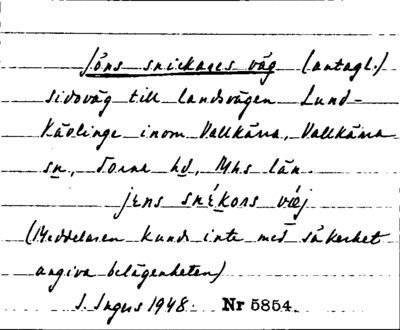 Jöns snickares väg (antagl.)
sidoväg till landsvägen Lund-
Kävlinge inom Vallkärra, Vallkärra
sn, Torna hd, Mhs län.
jens snékors vœj
(Meddelaren kunde inte med säkerhet
angiva belägenheten)
S. Ingers 1948. Nr 5854.